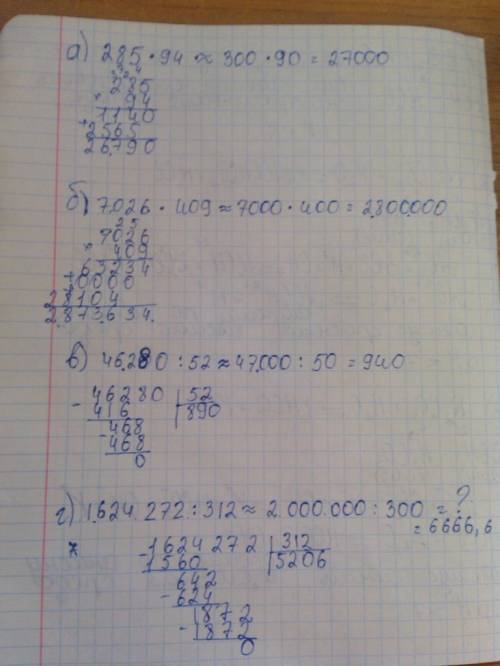 а) 285 · 94 ≈ 300 · 90 = 27000
285
× 94
1140
+ 2565
26790
б) 7.026 · 409 ≈ 7000 · 400 = 2.800.000
2 5
7026
× 409
63234
+ 0000
28104
2.873.634.
в) 46.280 : 52 ≈ 47.000 : 50 = 940
- 46280 | 52
416 | 890
- 468
468
0
г) 1.624.272 : 312 ≈ 2.000.000 : 300 = ?
= 6666,6
- 1624272 | 312
1560 | 5206
- 642
624
- 1872
1872
0